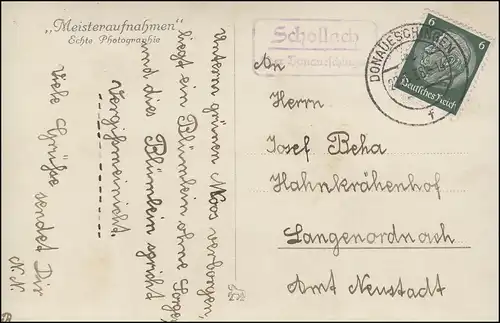 „Meisteraufnahmen"
Echte Photographie
Unterm grünen Moos verborgen,
liegt ein Blümlein ohne Sorgen
und dies Blümlein spricht
Vergißmeinicht.
Viele Grüße sendet Dir
N.N.
Schollach
Donaueschingen
DONAUESCHINGEN
6 6
Deutsches Reich
An
Herrn
Josef Beha
Hahnkrähenhof
Langenordnach
Amt Neustadt